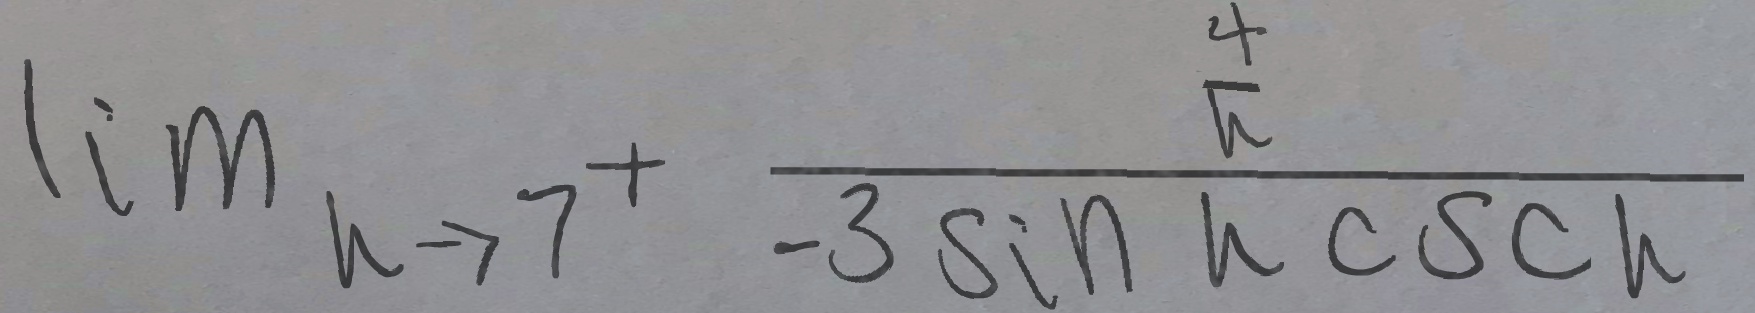 \lim_{h \to 7^+} \frac{\frac{4}{h}}{-3 \sin h \csc h}